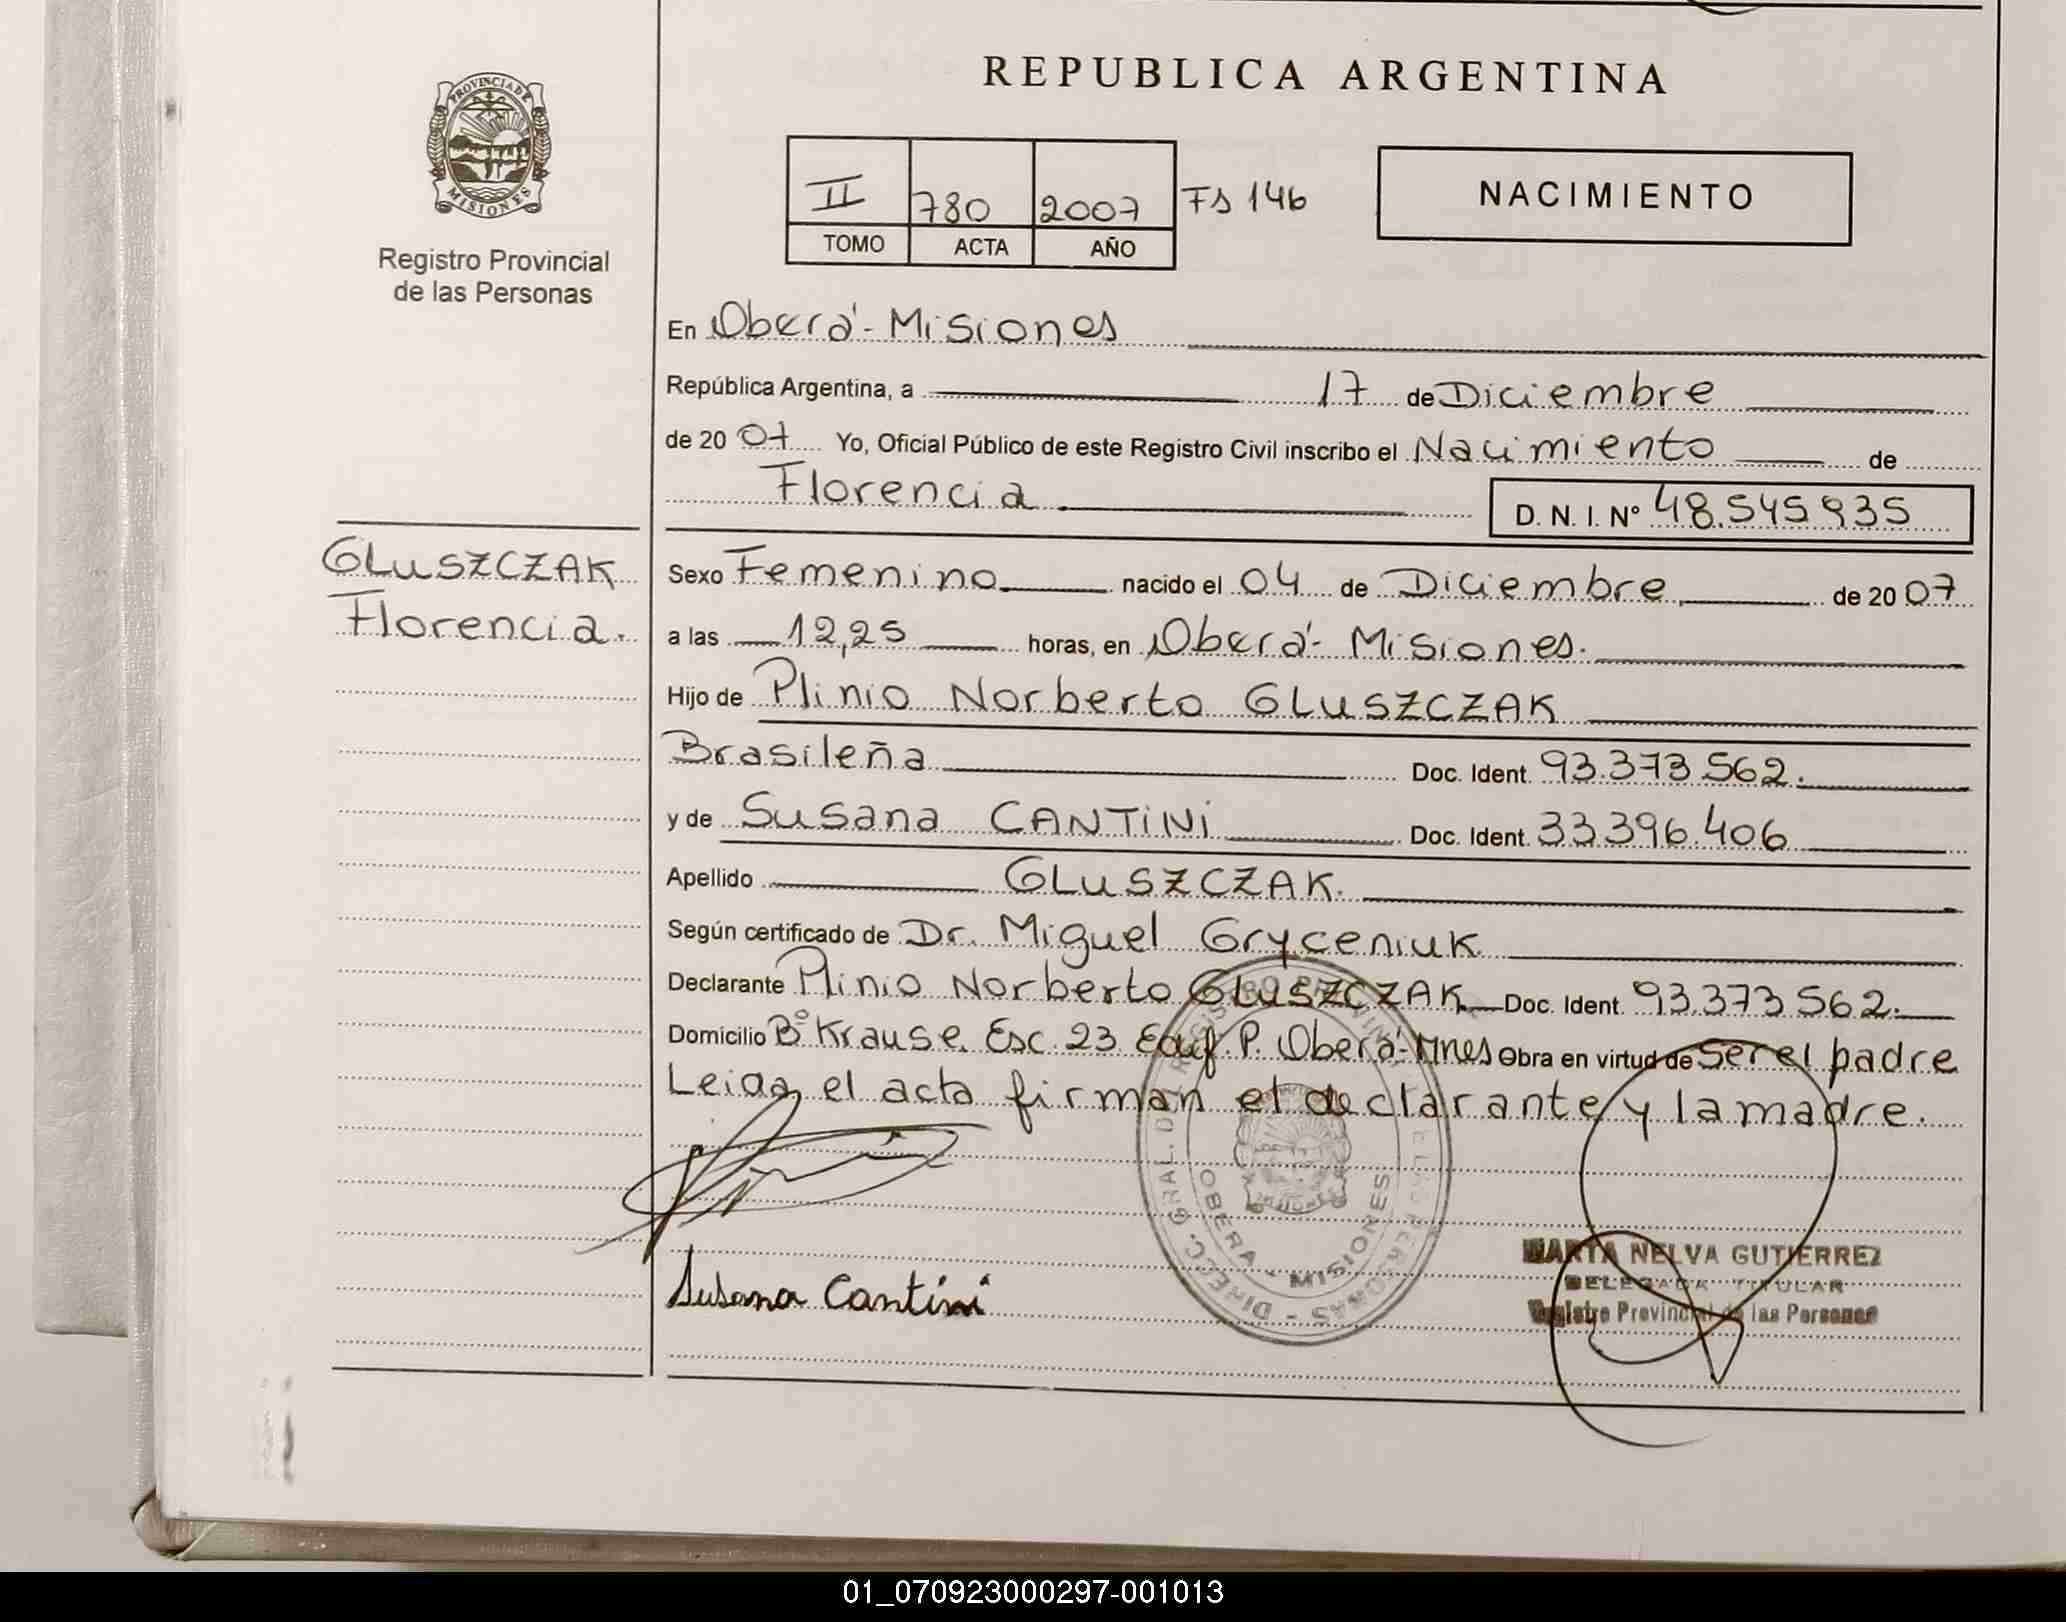 REPUBLICA ARGENTINA
PROVINCIA DE
MISIONES
Registro Provincial
de las Personas
II 780 2007 Fs 146
TOMO ACTA AÑO
NACIMIENTO
En Oberá - Misiones
República Argentina, a 17 de Diciembre
de 2007 Yo, Oficial Público de este Registro Civil inscribo el Nacimiento de
Florencia D. N. I. Nº 48.545.935
GLUSZCZAK
Florencia.
Sexo Femenino nacido el 04 de Diciembre de 2007
a las 12,25 horas, en Oberá - Misiones.
Hijo de Plinio Norberto GLUSZCZAK
Brasileña Doc. Ident. 93.373.562.
y de Susana CANTINI Doc. Ident. 33.396.406
Apellido GLUSZCZAK.
Según certificado de Dr. Miguel Gryceniuk
Declarante Plinio Norberto GLUSZCZAK Doc. Ident. 93.373.562.
Domicilio Bº Krause. Esc. 23 Edif. P. Oberá - Mnes Obra en virtud de ser el padre
Leida el acta firman el declarante y la madre.
Susana Cantini
OBERA - MISIONES
MARTA NELVA GUTIERREZ
DELEGADA TITULAR
Registro Provincial de las Personas
01_070923000297-001013